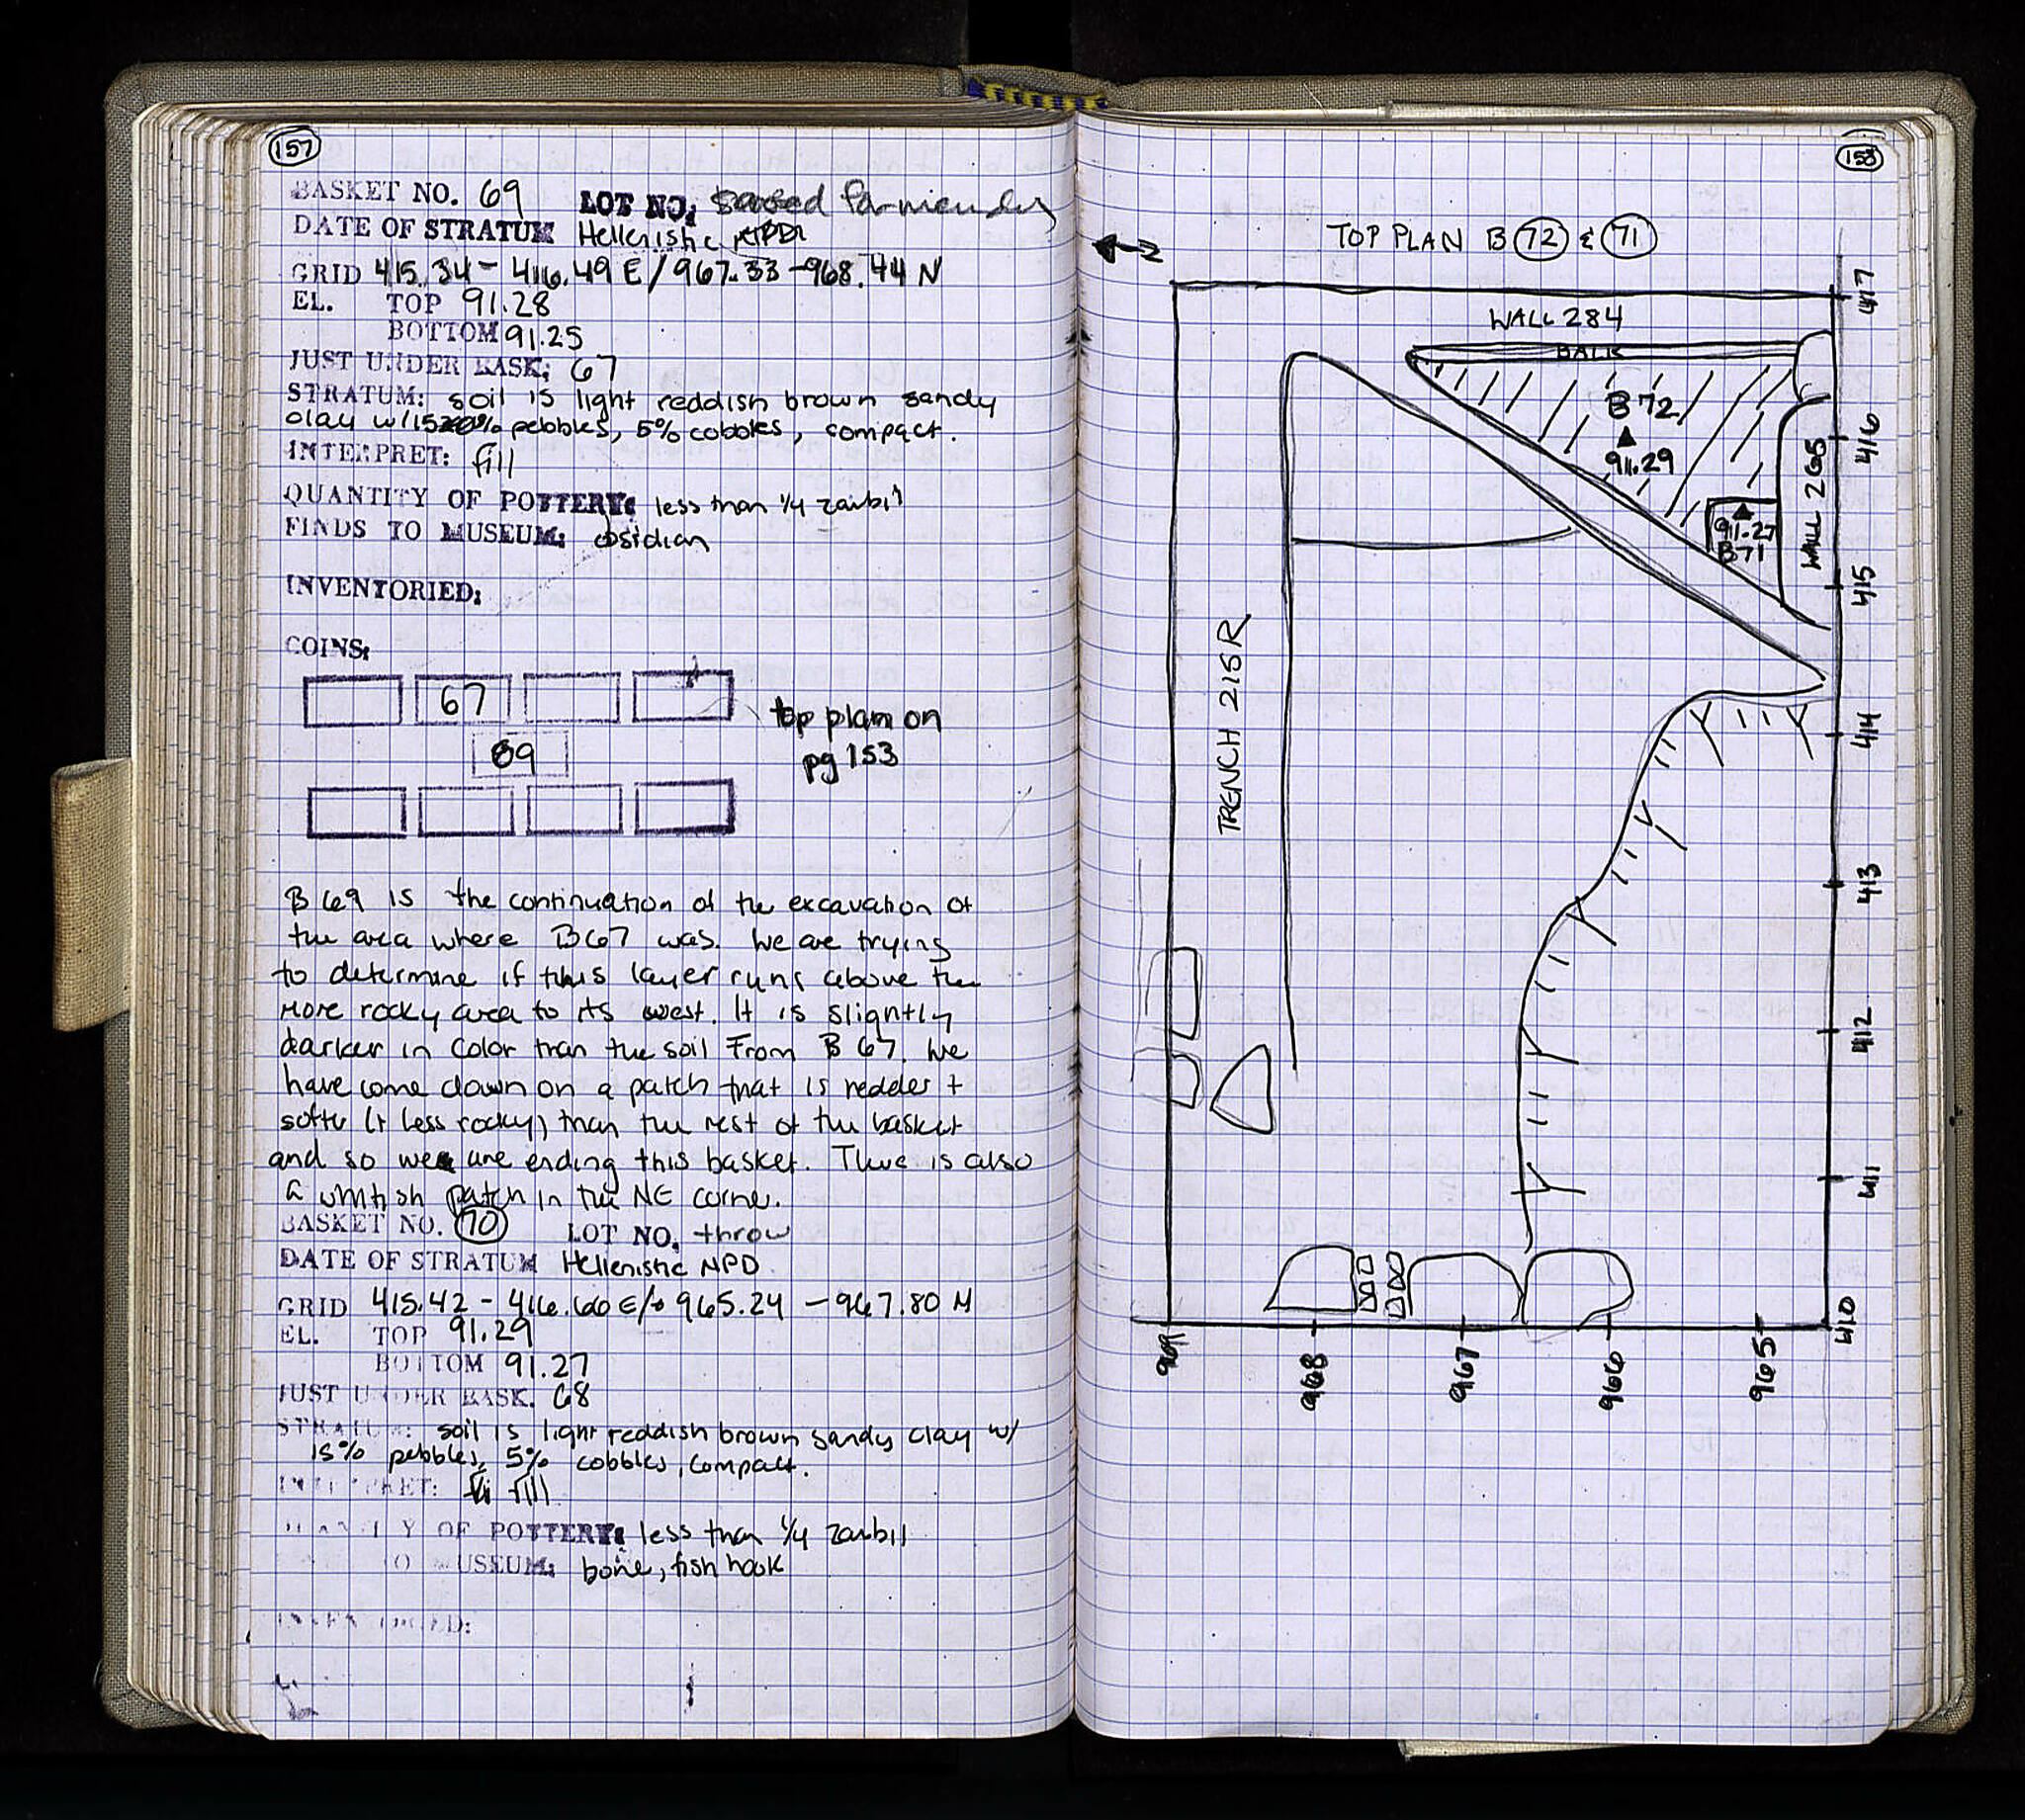 157
BASKET NO. 69 LOT NO: saved for mending
DATE OF STRATUM Hellenistic NPD
GRID 415.34 - 416.49 E / 967.33 - 968.44 N
EL. TOP 91.28
BOTTOM 91.25
JUST UNDER BASK: 67
STRATUM: soil is light reddish brown sandy
clay w/ 15% pebbles, 5% cobbles, compact.
INTERPRET: fill
QUANTITY OF POTTERY: less than 1/4 zambil
FINDS TO MUSEUM: obsidian
INVENTORIED:
COINS:
67
69
top plan on
pg 153
B 69 is the continuation of the excavation of
the area where B67 was. We are trying
to determine if this layer runs above the
more rocky area to its west. It is slightly
darker in color than the soil from B 67. We
have come down on a patch that is redder +
softer (+ less rocky) than the rest of the basket
and so we are ending this basket. There is also
a whitish patch in the NE corner.
BASKET NO. 70 LOT NO. throw
DATE OF STRATUM Hellenistic NPD
GRID 415.42 - 416.60 E/ 965.24 - 967.80 N
EL. TOP 91.29
BOTTOM 91.27
JUST UNDER BASK. 68
STRATUM: soil is light reddish brown sandy clay w/
15% pebbles, 5% cobbles, compact.
INTERPRET: fill
QUANTITY OF POTTERY: less than 1/4 zambil
TO MUSEUM: bone, fish hook
INVENTORIED:
158
TOP PLAN B 72 & 71
N
WALL 284
BALK
B 72
91.29
91.27
B71
WALL 265
TRENCH 215R
417
416
415
414
413
412
411
410
969
968
967
966
965